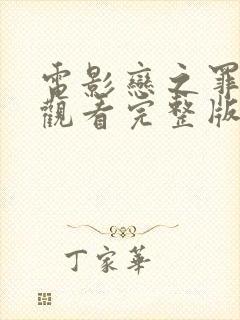 電影戀之罪
觀看完整版
丁家華